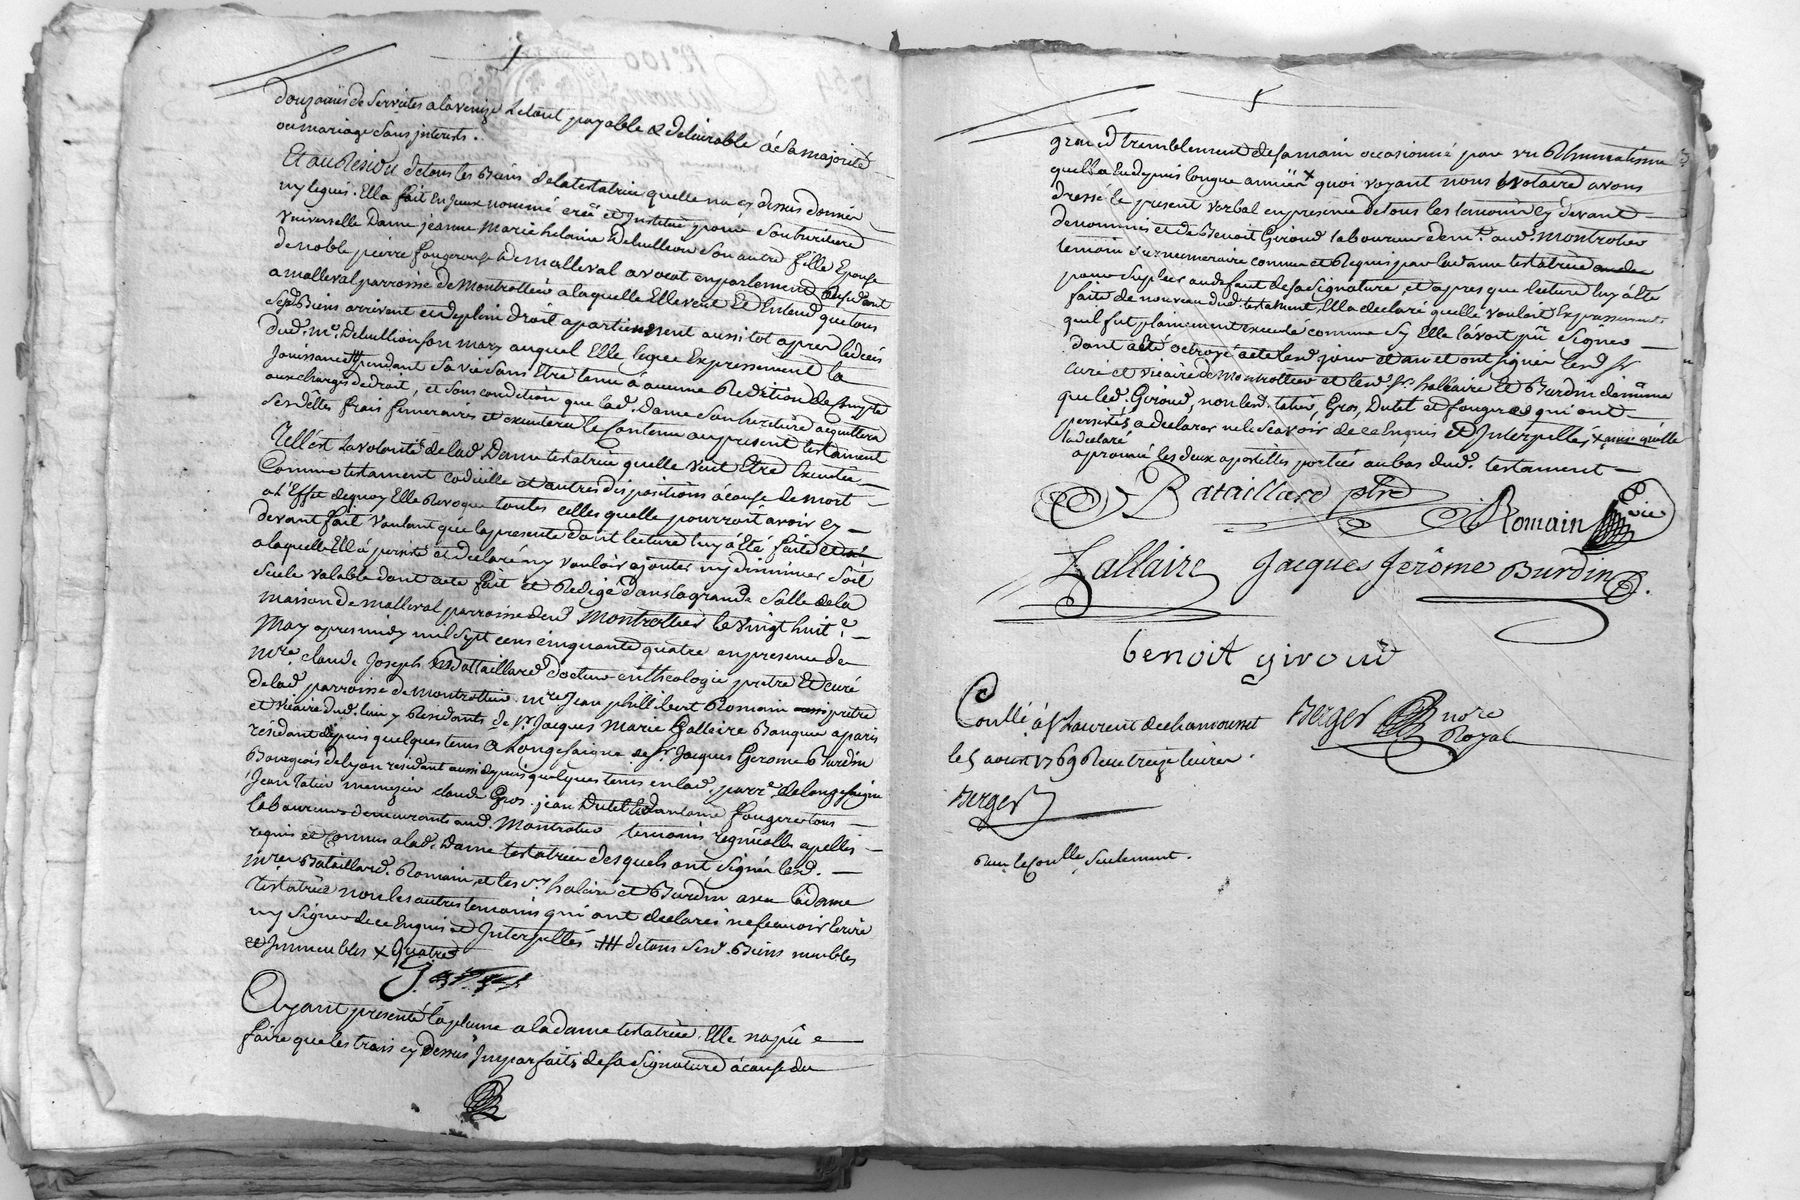 douzaines de serviettes a la venize le tout payable & delivrable á sa majorité
ou mariage sans interests.
Et au Residu de tous les Biens de la testatrice quelle na cy dessus donnés
ny legués. Ella fait en jceux nommé creé et Institué pour son heritiere
Universelle Dame jeanne Marie helaine Debullioud son autre fille Epouse
de noble pierre fougerouse de malleval avocat en parlement
a malleval parroisse de Montrottier a laquelle Elle veut Et Entend que tous
sesd. Biens arrivent et de plein droit apartiennent aussitot apres le decés
dud. Mr. Debullioud son mary auquel Elle legue Expressement la
Jouissance ⧺ pendant sa vie sans Etre tenu á aucune Redition de compte
aux charges de droit, et sous condition que lad. Dame son heritiere acquittera
ses dettes frais funeraires et executera le Contenu au present testament
Telle est la volonté de lad. Dame testatrice quelle veut Etre Executée
Comme testament codicille et autres dispositions á cause de mort
a l'Effet de quoy Elle Revoque toutes celles quelle pourroit avoir cy
devant fait Voulant que la presente dont lecture luy á Eté faite
a laquelle Ellé á persisté et declaré ny vouloir ajouter ny diminuer soit
seule valable dont acte fait et Redigé dans la grande salle de la
maison de malleval parroisse dud. Montrottier le vingt huit
May apres midy mil sept cens cinquante quatre en presence de
mre. claude Joseph Battaillard docteur en theologie pretre Et curé
de lad. parroisse de Montrottier mre Jean phillibert Romain pretre
et vicaire dud. lieu y Residants de sr Jacques Marie Hallaire Banquier a paris
résidant depuis quelques tems a Longessaigne de sr. Jacques Gerome Burdin
Bourgeois de lyon residant aussi depuis quelques tems en lad. parr.e de longessaigne
Jean Tatin menuizier claude Gros jean Dutel et antoine fougere tous
laboureurs demeurants aud. Montrotier temoins regnicolles apellés
requis et Connus a lad. Dame testatrice desquels ont signés lesd.
mres Bataillard. Romain, et les srs halaire et Burdin avec la dame
testatrice non les autres temoins qui ont declarés ne scavoir Ecrire
ny signer de ce Enquis et Interpellés ⧺ de tous sesd. Biens meubles
et Jmmeubles x quatre
Ayant presenté la plume a la dame testatrice. Elle na pû
faire que les trais cy dessus Jmparfaits de sa signature á cause du
grand tremblement de sa main occasionné par un Rhumatisme
quelle a Eu depuis longue année x quoi voyant nous Notaire avons
dressé le present verbal en presence de tous les temoins cy devant
denommés et de Benoit Giroud laboureur dem.t aud. Montrotier
temoin surnumeraire connu et Requis par la dame testatrice
pour supleer au defaut de sa signature et apres que lecture luy á Eté
faite de nouveau dud. testament, Ella declaré quelle vouloit Expressement
quil fut plainement executé comme sy Elle lávoit pû signer
dont acté octroyé acte lesd. jour et an et ont signés lesd. srs
curé et vicaire de Montrottier et lesd. srs. halleaire Et Burdin de même
que led. Giroud, non lesd. tatin, Gros, Dutel et fougere qui ont
persistés a declarer ne le scavoir de ce Enquis Et Interpellés x ainsi quélle
la declaré
aprouvé les deux apostilles portées au bas dud. testament
Bataillard ptre Romain vic
Hallaire Jacques Jerôme Burdin
benoit giroud
Conllé á St Laurent de chamousset Berger nore
Royal
le 5 aoust 1769 Reçu treize livres.
Berger
Pour le Conlle seulement.